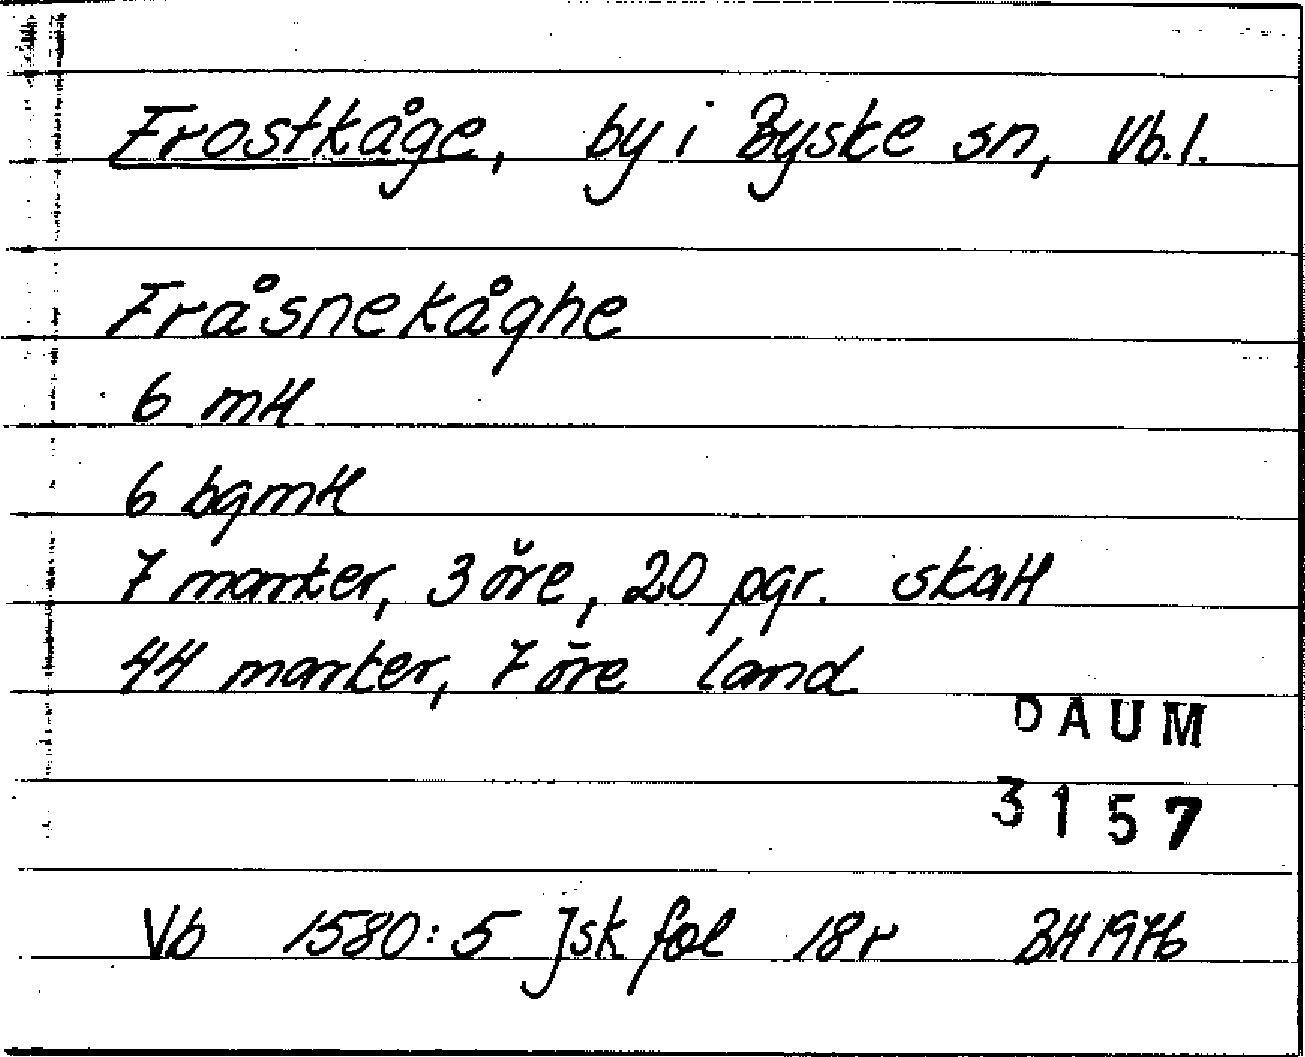 Frostkåge, by i Byske sn, Vb. l.
Fråsnekåghe
6 mtl
6 bgmtl
7 marker, 3 öre, 20 pgr. skatt
44 marker, 7 öre land
DAUM
3157
Vb 1580:5 Jsk fol 18r BH 1976